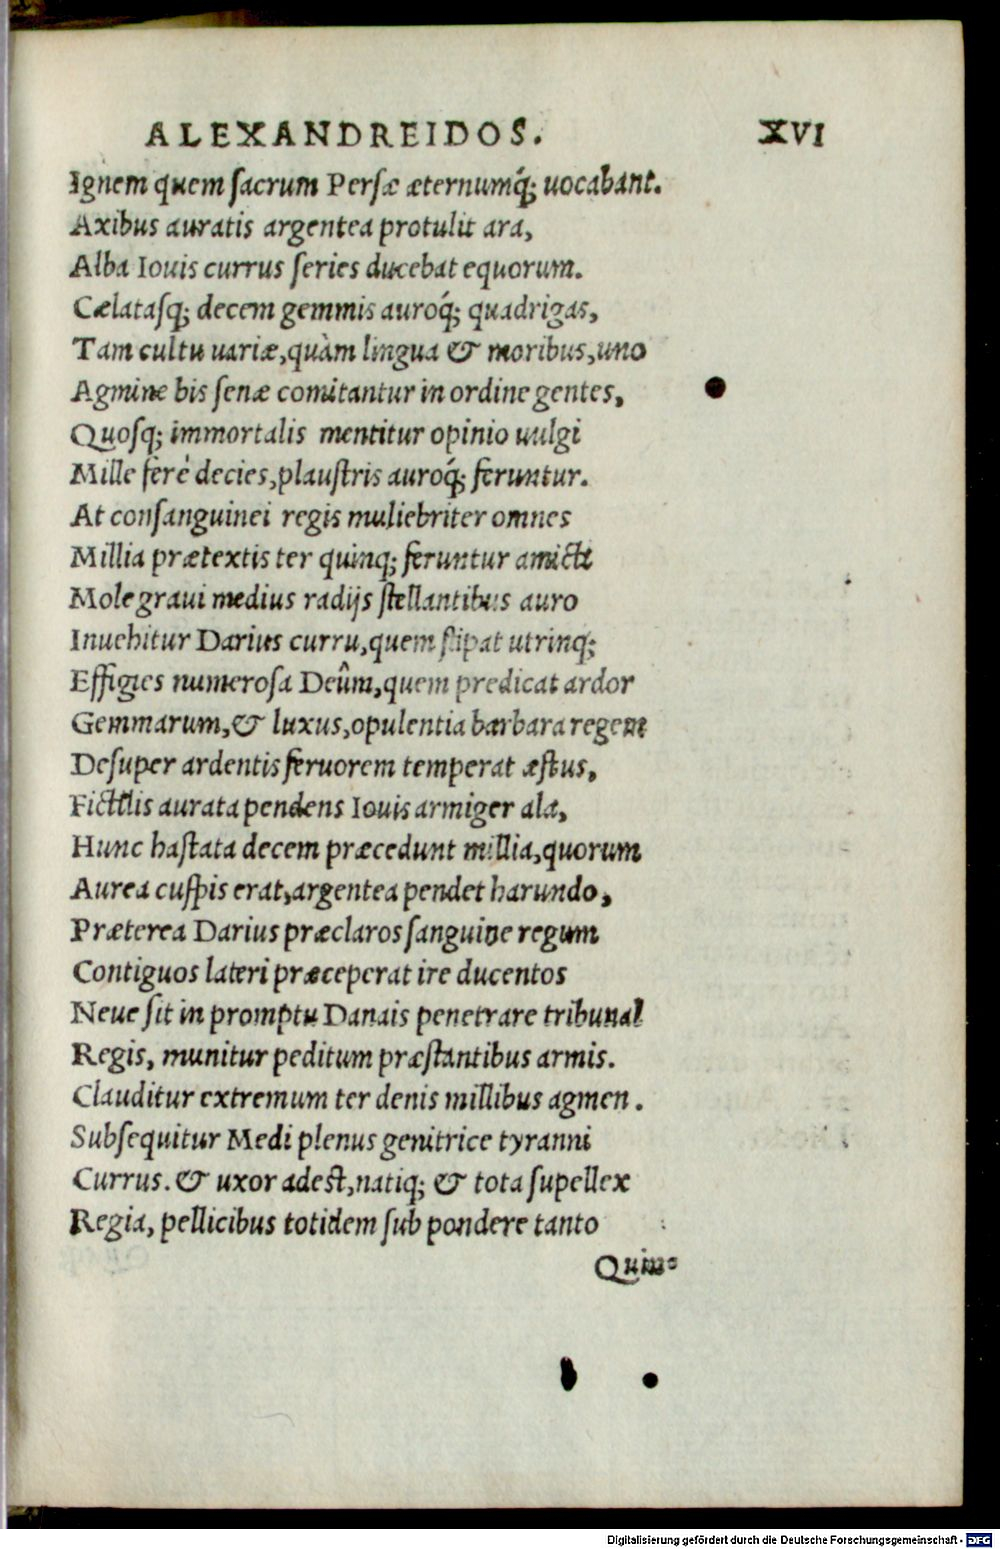 ALEXANDREIDOS. XVI
Ignem quem ſacrum Perſæ æternumq́; uocabant.
Axibus auratis argentea protulit ara,
Alba Iouis currus ſeries ducebat equorum.
Cælataſq; decem gemmis auroq́; quadrigas,
Tam cultu uariæ, quàm lingua & moribus, uno
Agmine bis ſenæ comitantur in ordine gentes,
Quoſq; immortalis mentitur opinio uulgi
Mille ferè decies, plauſtris auroq́; feruntur.
At conſanguinei regis muliebriter omnes
Millia prætextis ter quinq; feruntur amicti
Mole graui medius radijs ſtellantibus auro
Inuehitur Darius curru, quem ſtipat utrinq;
Effigies numeroſa Deûm, quem predicat ardor
Gemmarum, & luxus, opulentia barbara regem
Deſuper ardentis feruorem temperat æſtus,
Fictilis aurata pendens Iouis armiger ala,
Hunc haſtata decem præcedunt millia, quorum
Aurea cuſpis erat, argentea pendet harundo,
Præterea Darius præclaros ſanguine regum
Contiguos lateri præceperat ire ducentos
Neue ſit in promptu Danais penetrare tribunal
Regis, munitur peditum præſtantibus armis.
Clauditur extremum ter denis millibus agmen.
Subſequitur Medi plenus genitrice tyranni
Currus. & uxor adeſt, natiq; & tota ſupellex
Regia, pellicibus totidem ſub pondere tanto
Quin-
Digitalisierung gefördert durch die Deutsche Forschungsgemeinschaft - DFG